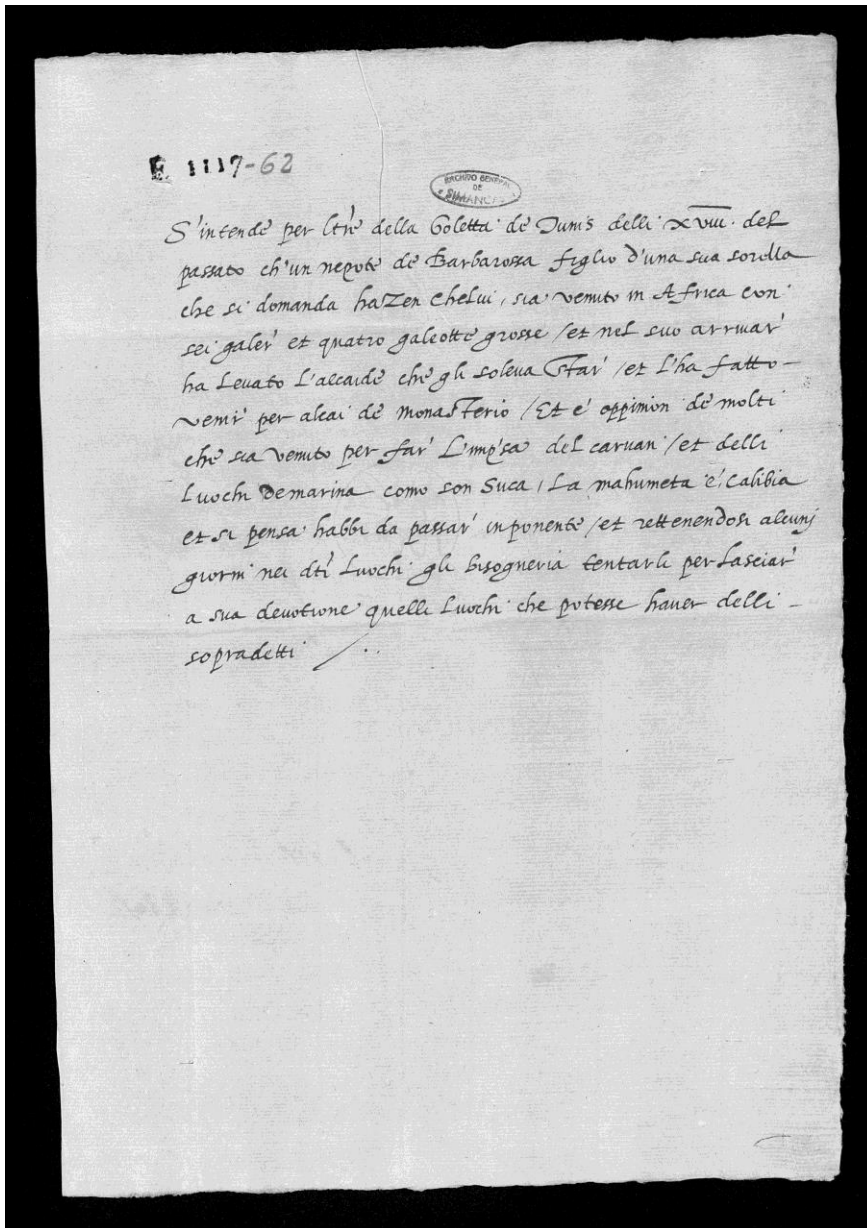 E 1117-62
ARCHIVO GENERAL
DE
SIMANCAS
S'intende per lr̃e della Goletta de Tunis delli xviii. del
passato ch'un nepote de Barbarossa figlio d'una sua sorella
che si domanda hazen chelui, sia venuto in Africa con
sei galer' et quatro galeotte grosse /et nel suo arrivar'
ha levato l'alcaide che gli soleva star' /et l'ha fatto-
venir' per alcaide monasterio /Et e' oppinion de molti
che sia venuto per far' l'imp̃sa del caruan /et delli
luochi de marina como son Suca, la mahumeta e' Calibia
et si pensa habbi da passar' in ponente /et rettenendosi alcunj
giorni nei dt̃i luochi gli bisogneria tentarli per lasciar'
a sua devotione quelli luochi che potesse haver delli -
sopradetti /..